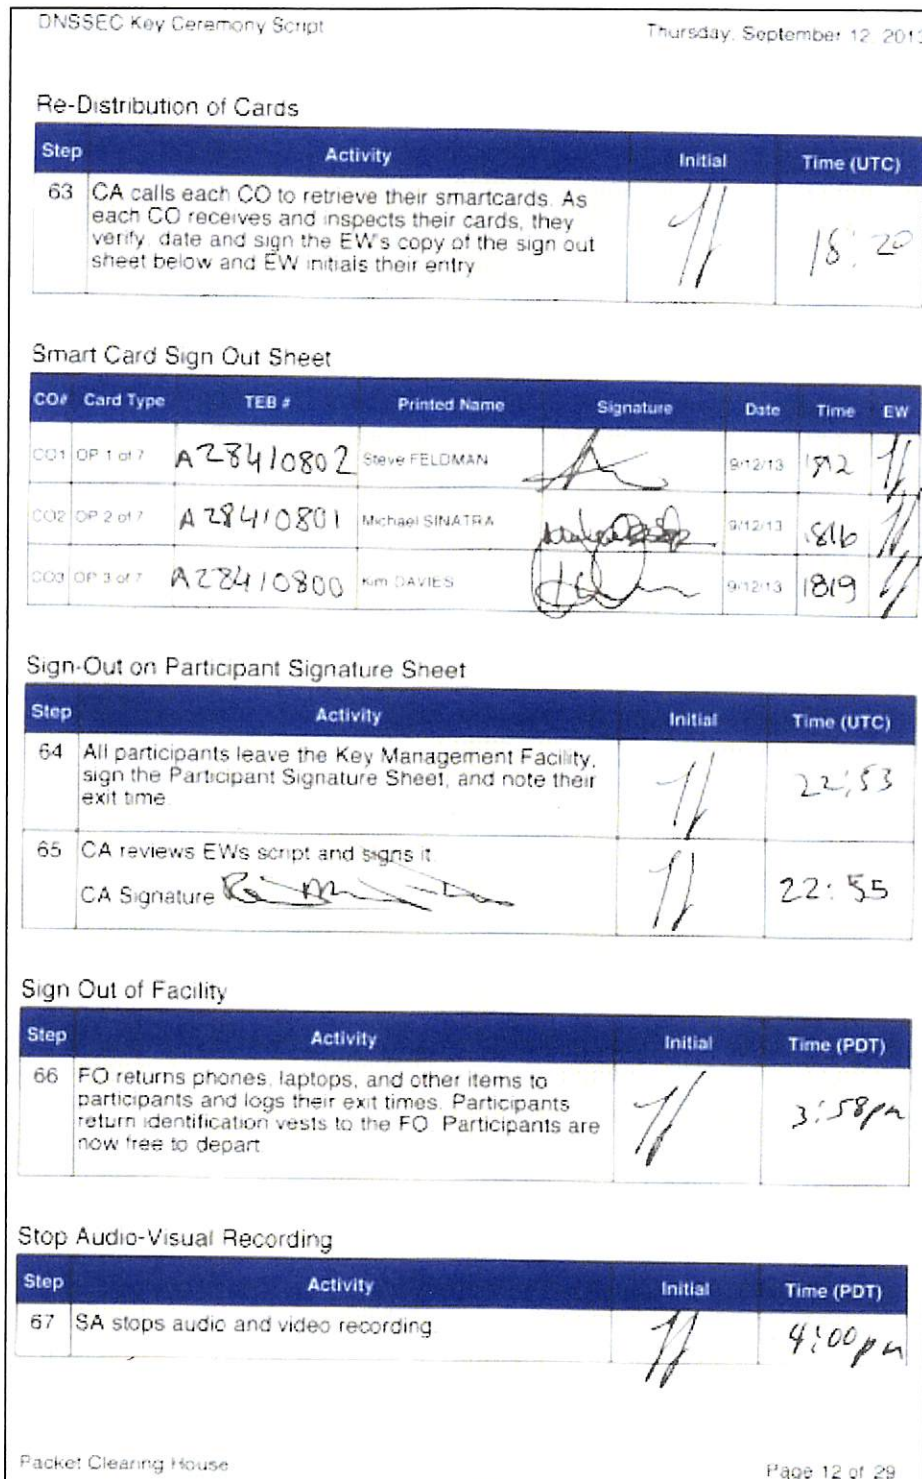 DNSSEC Key Ceremony Script Thursday, September 12, 2013
Re-Distribution of Cards
Step Activity Initial Time (UTC)
63 CA calls each CO to retrieve their smartcards. As
each CO receives and inspects their cards, they
verify, date and sign the EW's copy of the sign out
sheet below and EW initials their entry
18:20
Smart Card Sign Out Sheet
CO# Card Type TEB # Printed Name Signature Date Time EW
CO1 OP 1 of 7 A28410802 Steve FELDMAN 9/12/13 1812
CO2 OP 2 of 7 A28410801 Michael SINATRA 9/12/13 1816
CO3 OP 3 of 7 A28410800 Kim DAVIES 9/12/13 1819
Sign-Out on Participant Signature Sheet
Step Activity Initial Time (UTC)
64 All participants leave the Key Management Facility,
sign the Participant Signature Sheet, and note their
exit time.
22:53
65 CA reviews EWs script and signs it.
CA Signature
22:55
Sign Out of Facility
Step Activity Initial Time (PDT)
66 FO returns phones, laptops, and other items to
participants and logs their exit times. Participants
return identification vests to the FO. Participants are
now free to depart.
3:58pm
Stop Audio-Visual Recording
Step Activity Initial Time (PDT)
67 SA stops audio and video recording.
4:00pm
Packet Clearing House Page 12 of 29